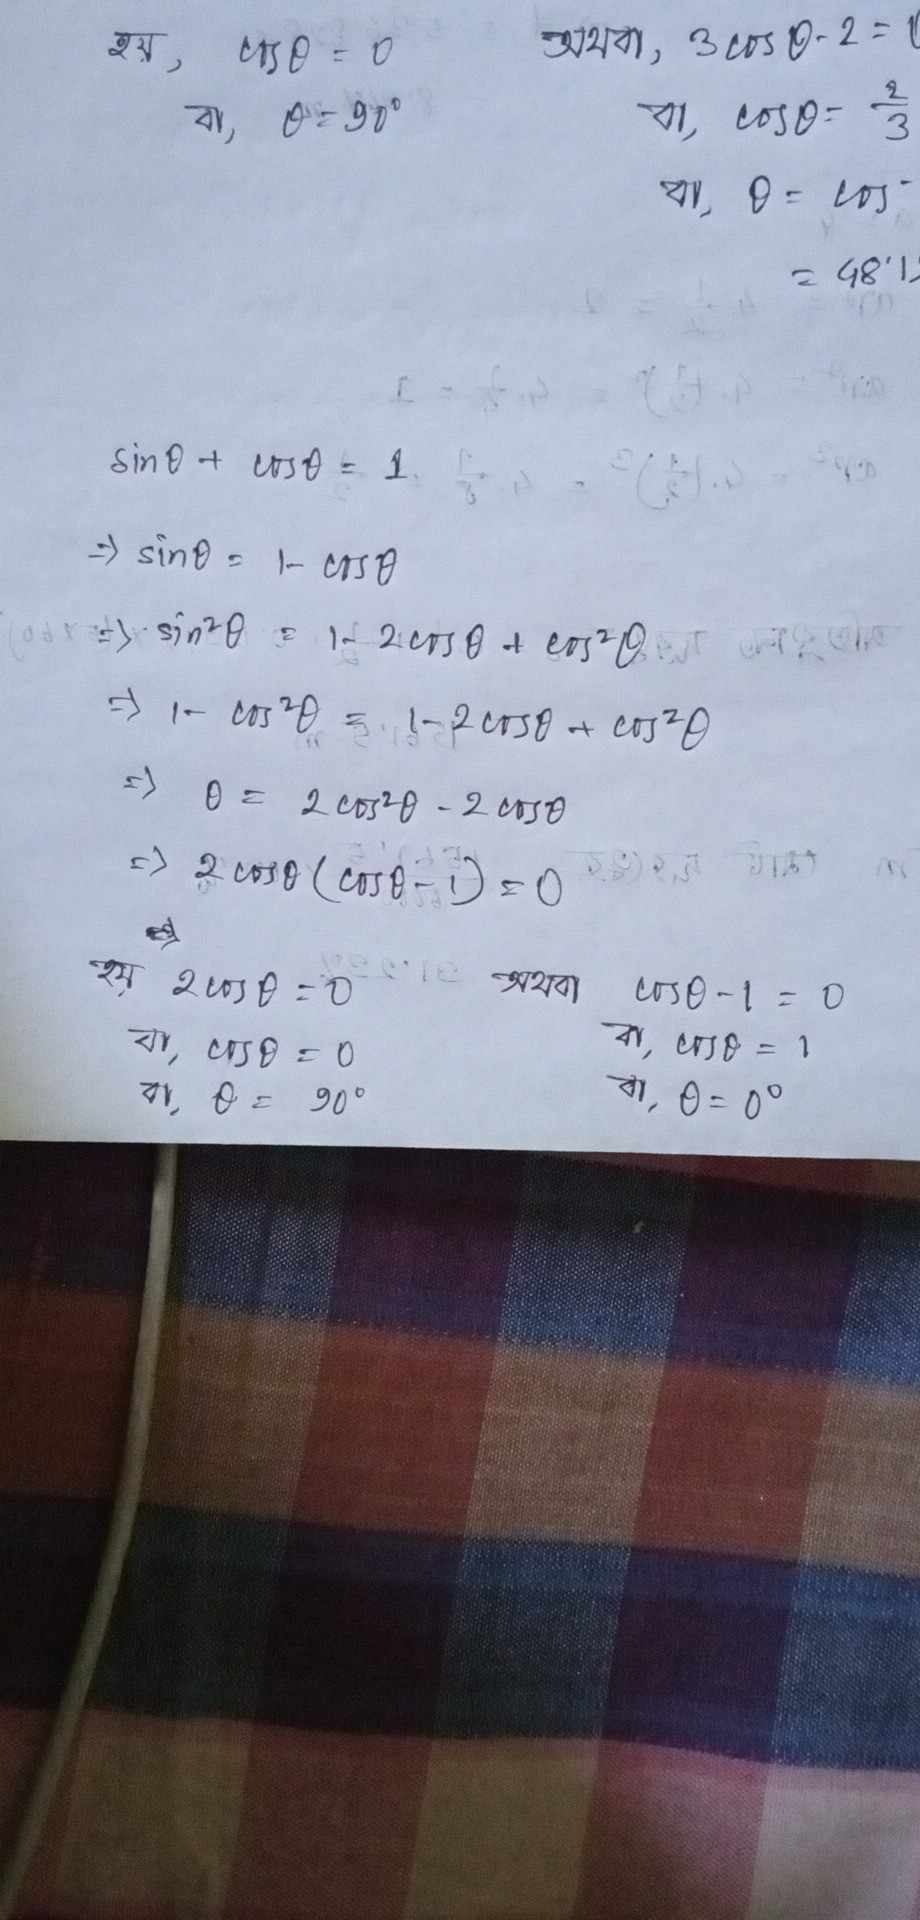 হয়, cosθ = 0 অথবা, 3cosθ-2=0
বা, θ=90° বা, cosθ= 2/3
বা, θ = cos-
= 48.1
sinθ + cosθ = 1
⇒ sinθ = 1- cosθ
⇒ sin²θ = 1- 2cosθ + cos²θ
⇒ 1- cos²θ = 1-2cosθ + cos²θ
⇒ θ = 2cos²θ - 2cosθ
⇒ 2cosθ(cosθ-1)=0
হয় 2cosθ=0 অথবা cosθ-1 = 0
বা, cosθ = 0 বা, cosθ = 1
বা, θ = 90° বা, θ=0°